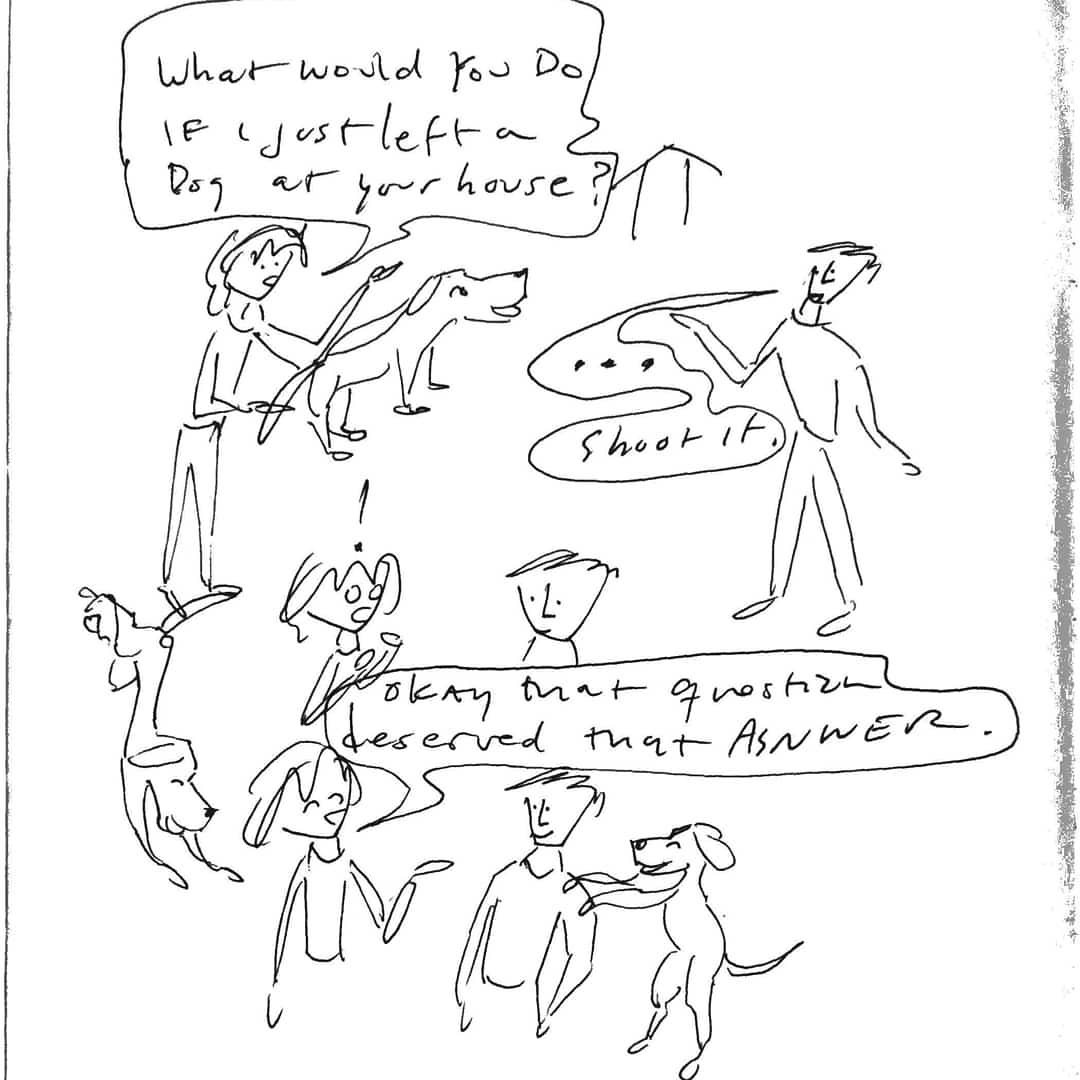 What would You Do
IF i just left a
Dog at your house?
...
Shoot it.
!
OKAY that question
deserved that ASNWER.